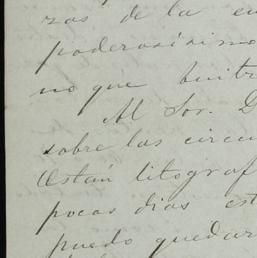 zas de la en
poderosísimo
no qué buitr
Al Sor. D
sobre las circu
Están litograf
pocos dias est
puedo quedar